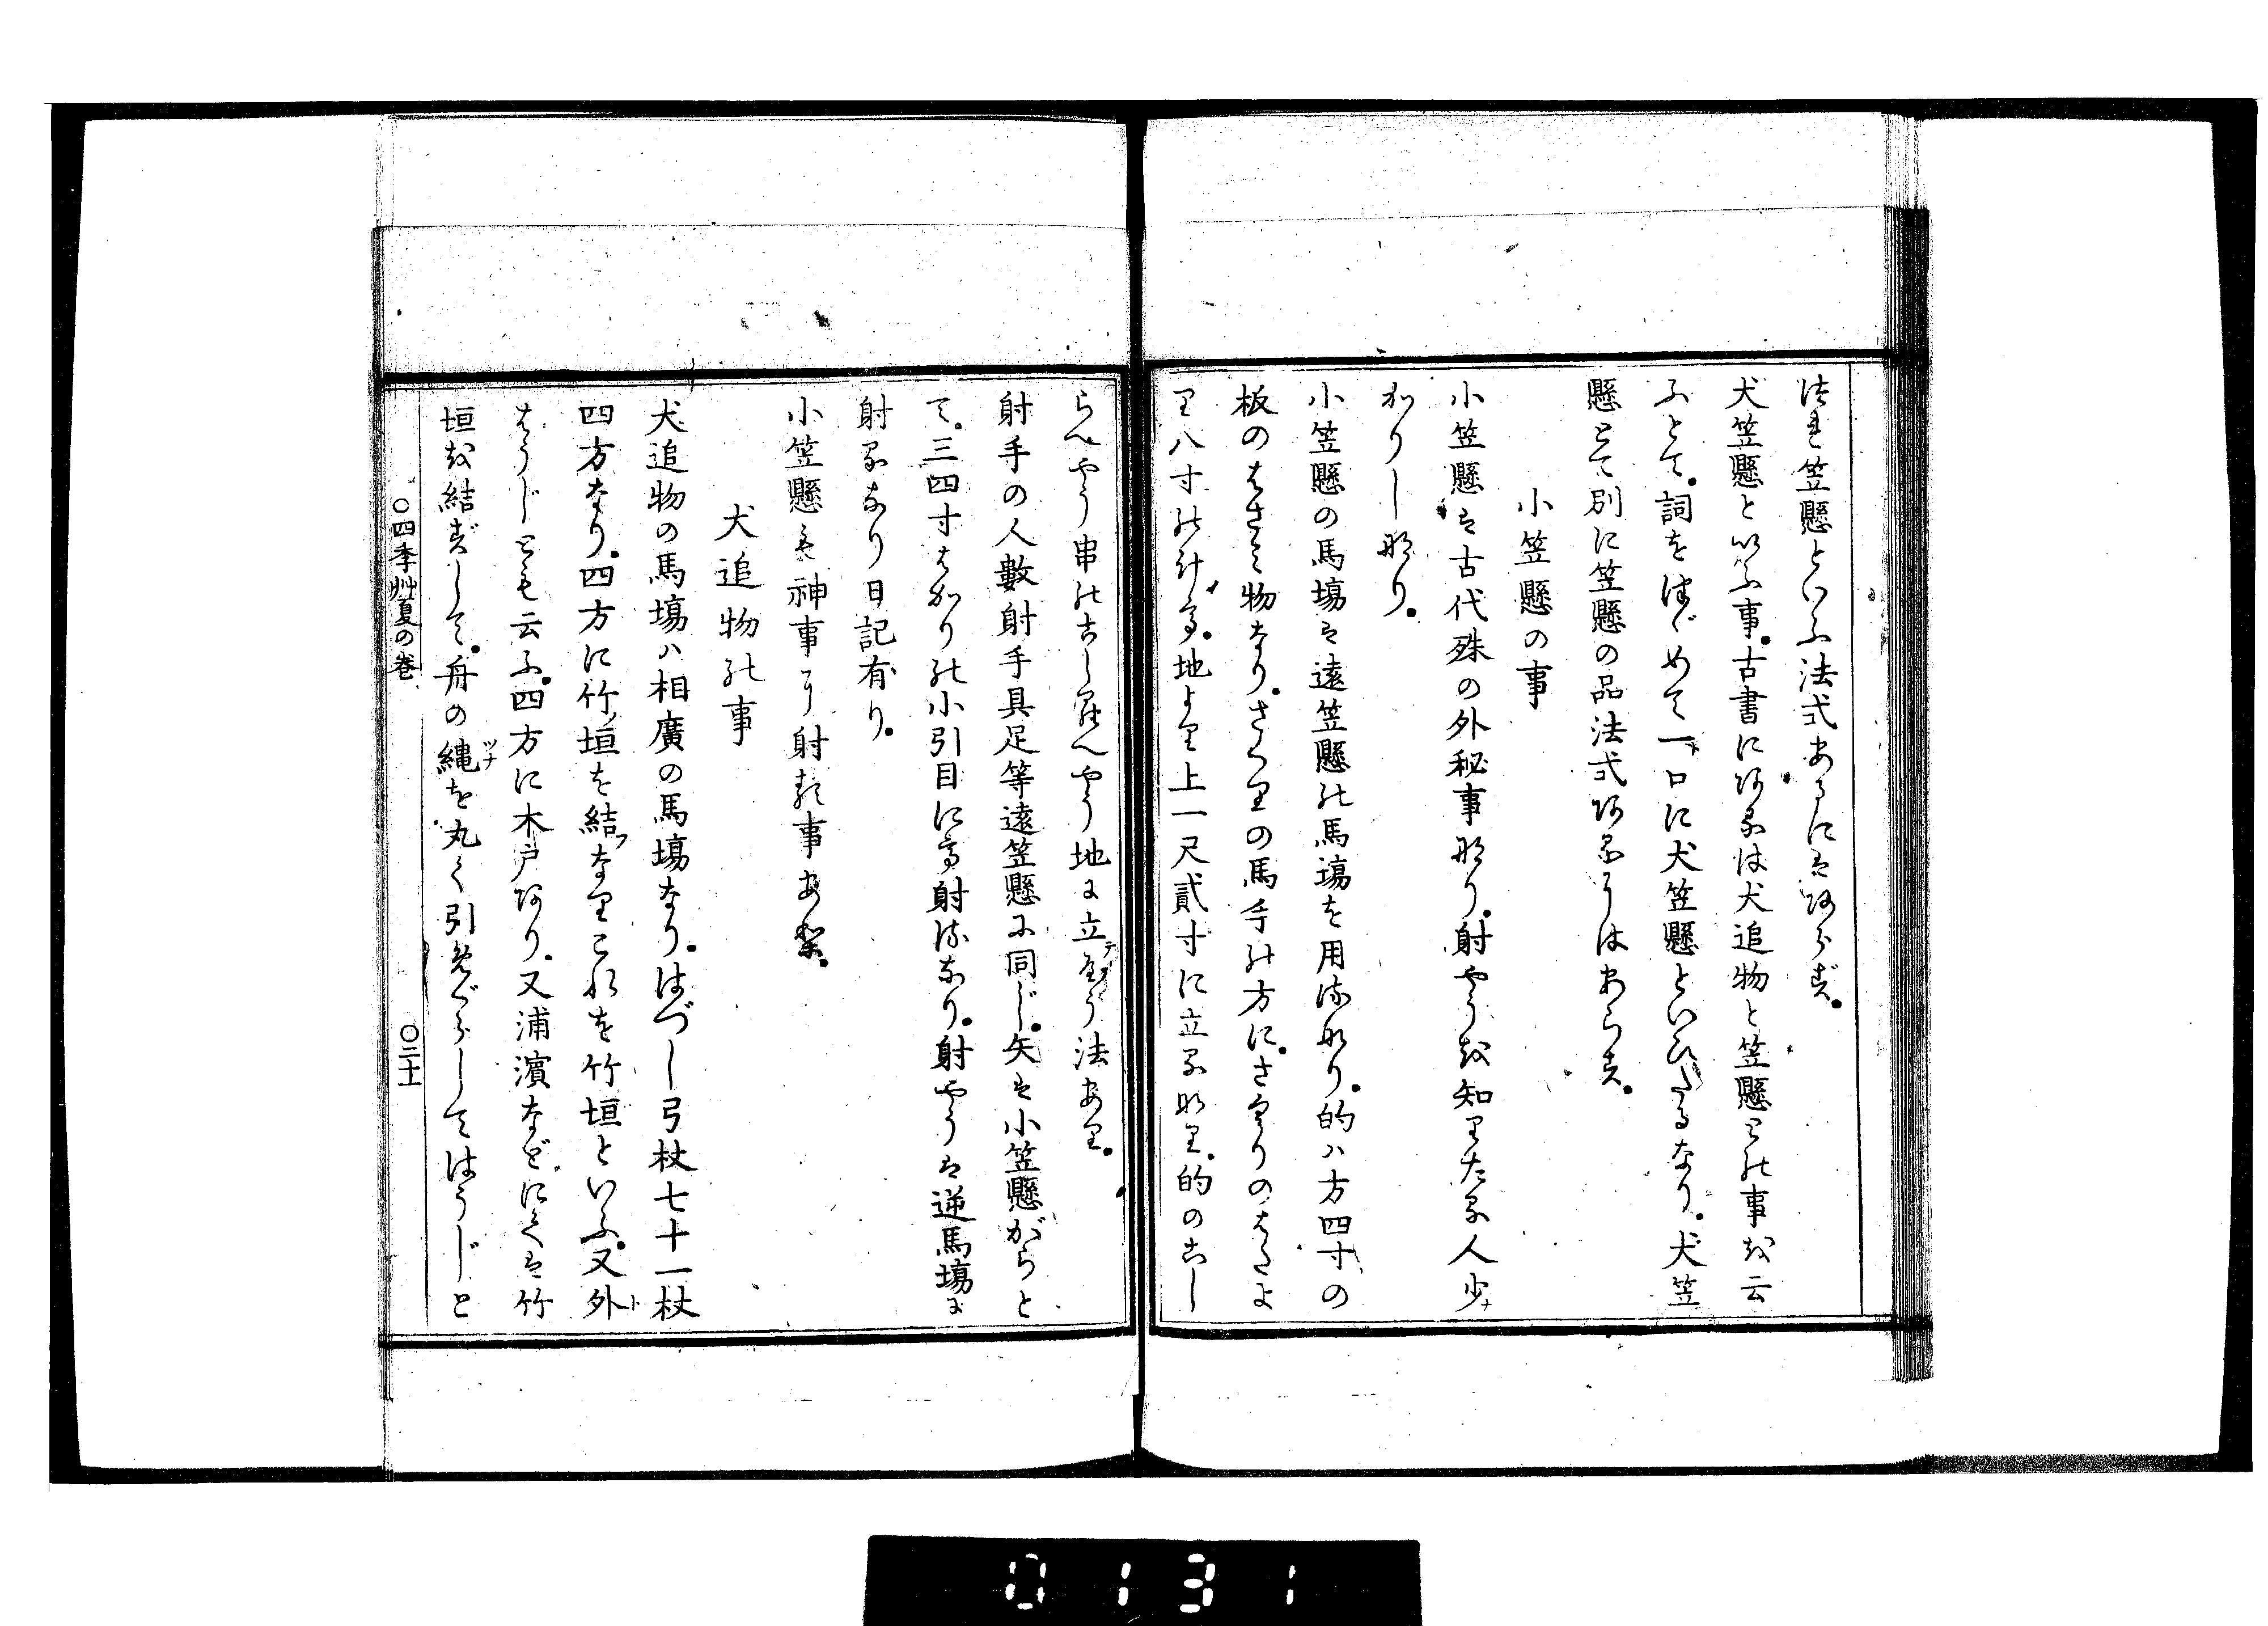 づれ笠懸といふ法式あるにはあらず。
犬笠懸といふ事。古書にあるは犬追物と笠懸との事を云
ふとて。詞をつゞめて一ト口に犬笠懸といひたるなり。犬笠
懸とて別に笠懸の品法式あるにはあらず。
小笠懸の事
小笠懸は古代殊の外秘事なり。射やうを知りたる人少ナ
かりしなり。
小笠懸の馬塲は遠笠懸の馬塲を用るなり。的ハ方四寸の
板のはさミ物なり。さくりの馬手の方に。さぐりのはたよ
り八寸のけて。地より上一尺貳寸に立るなり。的のこし
らへやう串のこしらへやう地に立テやう法あり。
射手の人數射手具足等遠笠懸に同じ。矢は小笠懸がらと
て。三四寸ばかりの小引目にて射るなり。射やうは逆馬塲に
射るなり日記有り。
小笠懸を神事に射る事あり。
犬追物の事
犬追物の馬塲ハ相廣の馬塲なり。はづし弓杖七十一杖
四方なり。四方に竹ノ垣を結フなりこれを竹垣といふ。又外ト
ばうじとも云ふ。四方に木戸あり。又浦濱などにては竹
垣を結ずして。舟の縄ツナを丸く引めぐらしてはうじと
○四季艸夏の巻
○三十一
0131